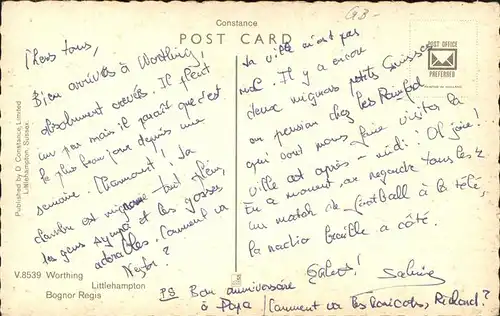 Constance
POST CARD
GB-
POST OFFICE
PREFERRED
Published by D. Constance Limited
Littlehampton, Sussex.
Chers tous,
Bien arrivés à Worthing,
absolument crevés. Il pleut
un peu mais il paraît que c'est
le plus beau jour depuis une
semaine. Charmant! La
chambre est mignonne tout plein,
les gens sympa et les gosses
adorables. Comment va
Nestor?
La ville n'est pas
mal. Il y a encore
deux mignons petits Suisses
en pension chez les
qui vont nous faire visiter la
ville cet après-midi! Oh joie!
En ce moment, on regarde tous les 4
un match de football à la télé,
la radio braille à côté.
Salut! Sabine
V.8539 Worthing
Littlehampton
Bognor Regis
PS Bon anniversaire
à Papa / Comment va les haricots, Richard?